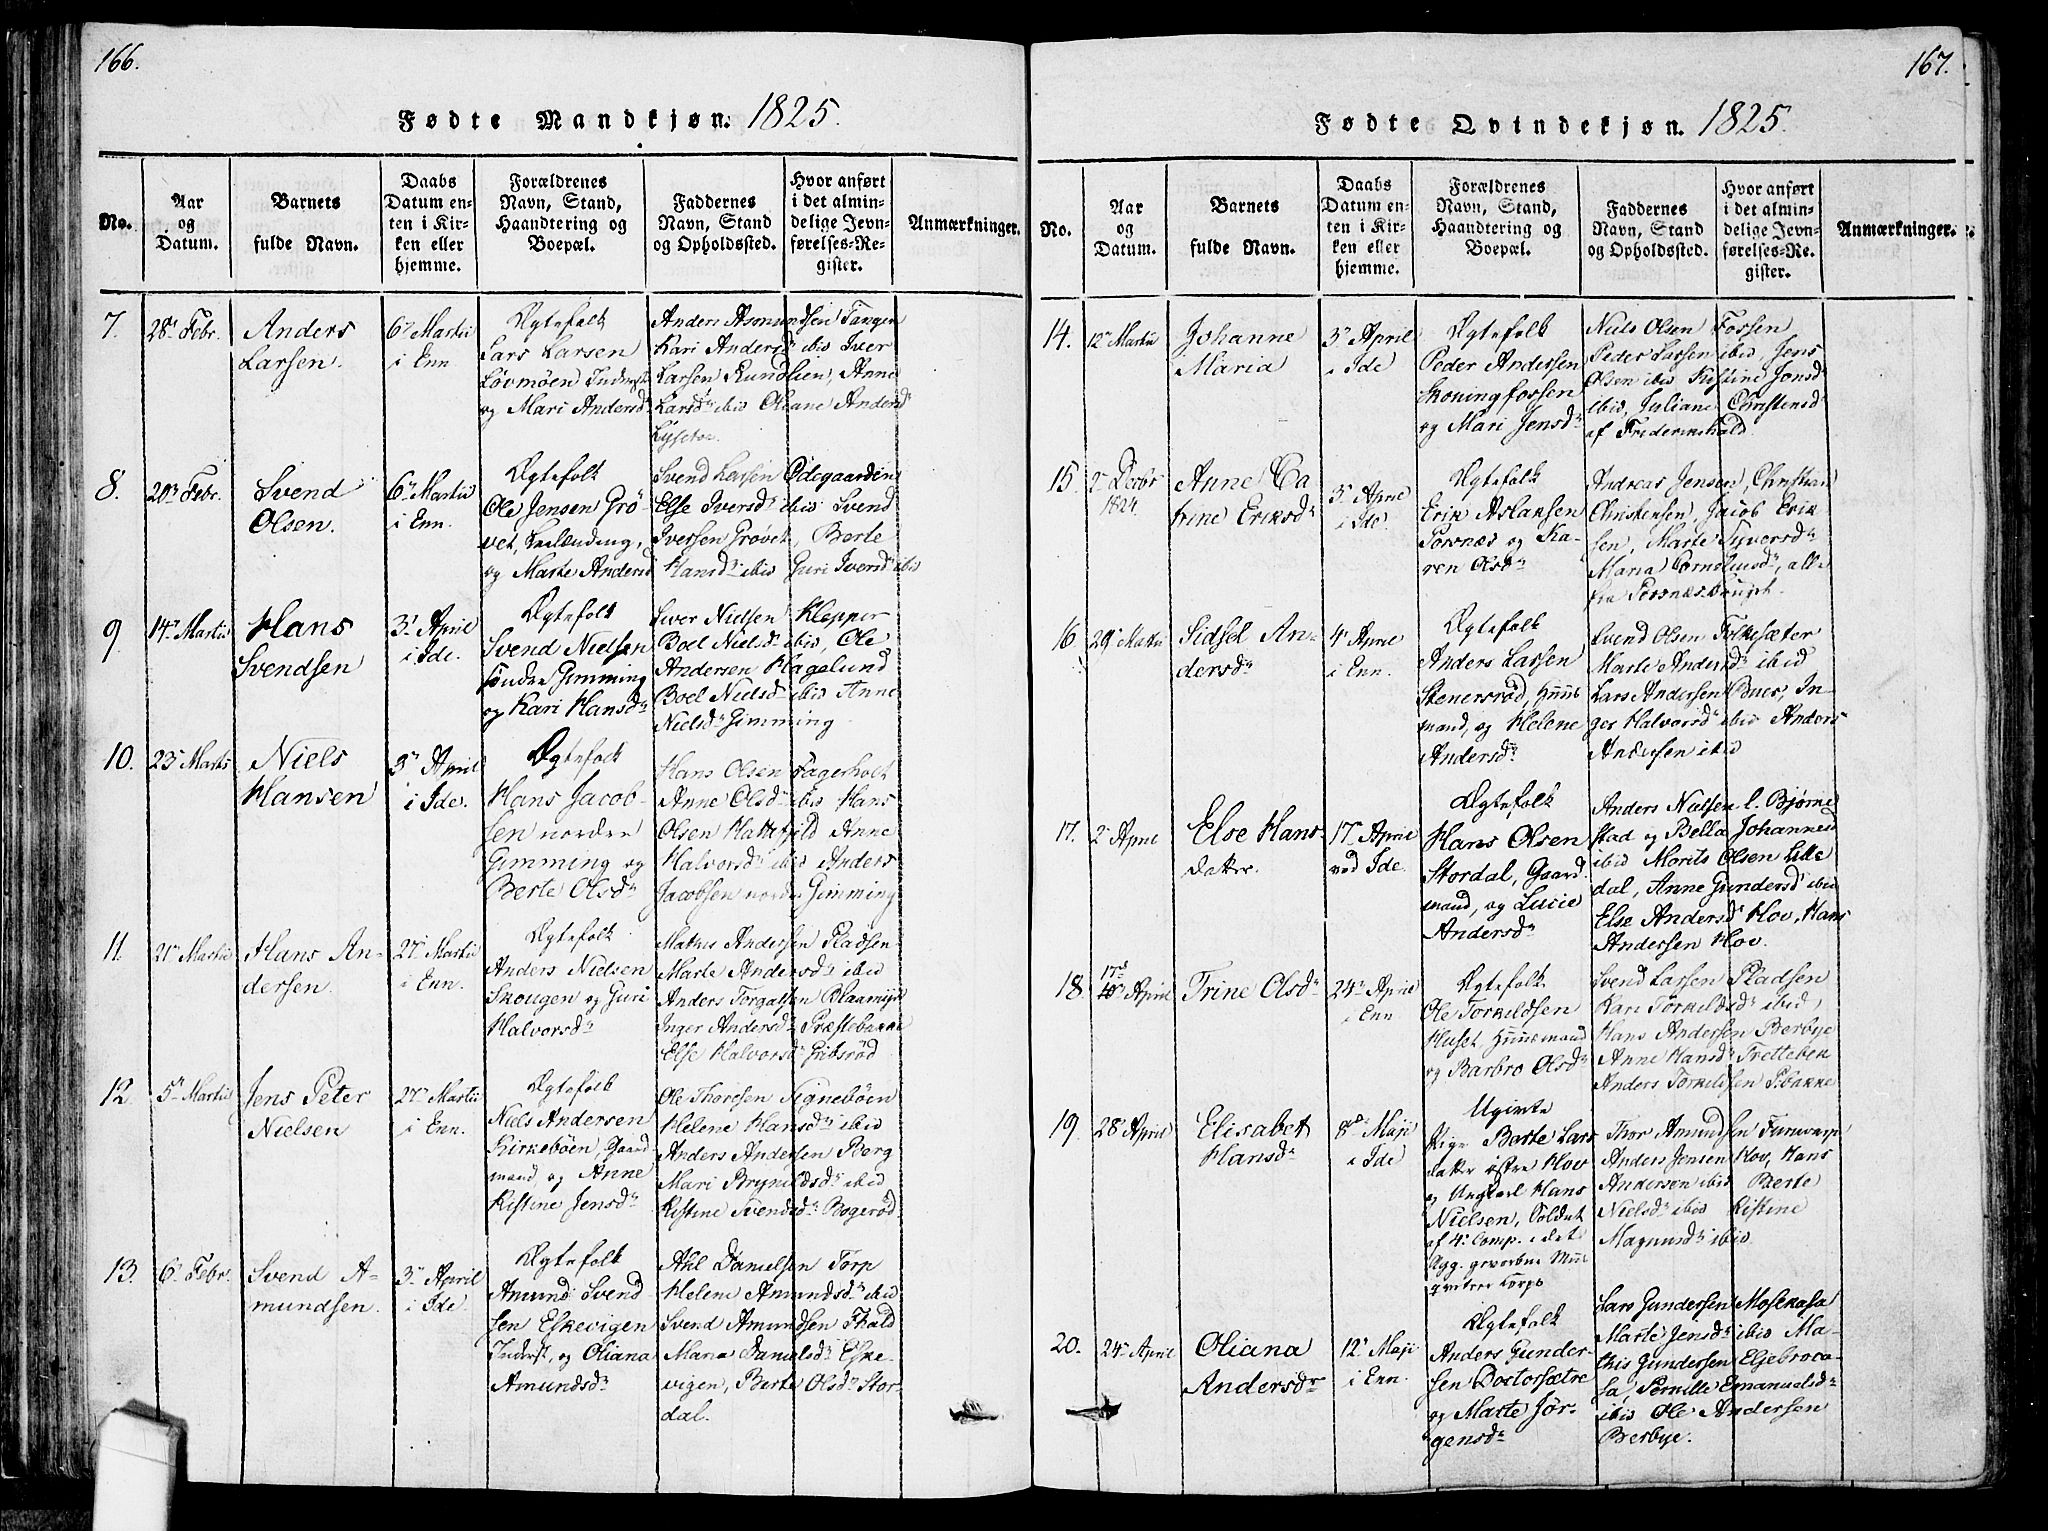 166.
Fødte Mandkjøn. 1825.
No.
Aar
og
Datum.
Barnets
fulde Navn.
Daabs
Datum en-
ten i Kir-
ken eller
hjemme.
Forældrenes
Navn, Stand,
Haandtering og
Boepæl.
Faddernes
Navn, Stand
og Opholdssted.
Hvor anført
i det almin-
delige Jevn-
førelses-Re-
gister.
Anmærkninger.
7.
28 Febr.
Anders
Larsen.
6 Martii
i Enn
Ægtefolk
Lars Larsen
Løvmoen Inderst
og Mari Andersd
Anders Asmundsen Tangen
Kari Andersd ibid Iver
Larsen Rundlien, Anne
Larsd ibid Oliane Andersd
8.
20 Febr.
Svend
Olsen.
6 Martii
i Enn.
Ægtefolk
Ole Jensen Grø
vet,
og Marte Andersd
Svend Larsen Ødegaarden
Else Iversd ibid Svend
Iversen Grøvet, Berte
Hansd ibid Guri Iversd ibid
9
14 Martii
Hans
Svendsen
3 April
i Ide.
Ægtefolk
Svend Nielsen
søndre Gimming
og Kari Hansd
Iver Nielsen Klepper
Boel Nielsd ibid, Ole
Andersen Hagelund
Boel Nielsd ibid Anne
Nielsd Gimming
10.
23 Marts
Niels
Hansen
3 April
i Ide.
Ægtefolk
Hans Jacob-
sen nordre
Gimming og
Berte Olsd
Hans Olsen Fagerholt
Anne Olsd ibid Hans
Olsen Hattefjeld Anne
Halvorsd ibid Anders
Jacobsen nordre Gimming
11.
21 Martii
Hans An-
dersen.
27 Martii
i Enn.
Ægtefolk
Anders Nielsen
Skougen og Guri
Halvorsd
Mathis Andersen Pladsen
Marte Andersd ibid
Anders Torgalsen
Inger Andersd Præstebakke
Else Halvorsd
12
5 Martii
Jens Peter
Nielsen
27 Martii
i Enn.
Ægtefolk
Niels Andersen
Kirkebøen, Gaard
mand, og Anne
Kistine Jensd
Ole Thoresen Signebøen
Helene Hansd ibid
Anders Andersen Berg
Mari Brynildsd ibid
Kistine Svendsd Bøgerød
13.
6 Febr.
Svend A-
mundsen.
3 April
i Ide
Ægtefolk
Amund Svend
sen Eskevigen
Inderst, og Oliana
Amundsd
Axl Danielsen Torp
Helene Amundsd ibid
Svend Amundsen Fhald
Maria Danielsd Eske-
vigen, Berte Olsd Stor-
dal.
167.
Fødte Qvindekjøn. 1825.
No.
Aar
og
Datum.
Barnets
fulde Navn.
Daabs
Datum en-
ten i Kir-
ken eller
hjemme.
Forældrenes
Navn, Stand,
Haandtering og
Boepæl.
Faddernes
Navn, Stand
og Opholdssted.
Hvor anført
i det almin-
delige Jevn-
førelses-Re-
gister.
Anmærkninger.
14.
12 Martii
Johanne
Maria
3 April
i Ide
Ægtefolk
Peder Andersen
Skoningfossen
og Mari Jensd
Niels Olsen Fossen
Peder Larsen ibid, Jens
Olsen ibid Kistine Jonsd
ibid, Juliane Christensd
af Friderikshald
15
2 Decbr
1824
Anne Ca
trine Eriksd
3 April
i Ide.
Ægtefolk
Erik Aslaksen
Porsnæs og Ka-
ren Olsd
Andreas Jensen, Christian
Christensen, Jacob Erik
sen, Marte Syversd
Maria Corneliusd, alle
fra Porsnæsbruget.
16
29 Martii
Sidsel An-
dersd
4 April
i Enn.
Ægtefolk
Anders Larsen
Stenersrød, Huus
mand, og Helene
Andersd
Svend Olsen Folkesæter
Marte Andersd ibid
Lars Andersen Buer, In-
ger Halvorsd ibid Anders
Andersen ibid
17.
2 April
Else Hans
datter.
17 April
ved Ide.
Ægtefolk
Hans Olsen
Stordal, Gaard
mand, og Lucie
Andersd
Anders Nielsen l. Bjørne
stad og Bella Johannesd
ibid Morits Olsen Lille
dal, Anne Gundersd ibid
Else Andersd Hov, Hans
Andersen Hov.
18
17
10 April
Trine Olsd
24 April
i Enn
Ægtefolk
Ole Torkildsen
Huset, Huusmand
og Barbro Olsd
Svend Larsen Pladsen
Kari Torkildsd ibid,
Hans Andersen Berbye
Anne Hansd Tretteben
Anders Torkildsen P.bakke
19.
28 April
Elisabet
Hansd
8 Maji
i Ide
Ugivte
Pige Berte Lars
datter østre Hov
og Ungkarl Hans
Nielsen, Soldat
af 4 Comp. i det
Agg. gevorbne Mus
qveteer Corps
Thor Amundsen
Anders Jensen Hov, Hans
Andersen ibid Berte
Nielsd ibid Kistine
Magnusd ibid
20.
24 April
Oliana
Andersdr
12 Maji
i Enn.
Ægtefolk
Anders Gunder-
sen Dostorsætre
og Marte Jør-
gensd
Lars Gundersen Mosekasa
Marte Jensd ibid Ma-
this Gundersen Eljebroca-
sa, Pernille Emanuelsd
ibid Ole Andersen
Berbye.